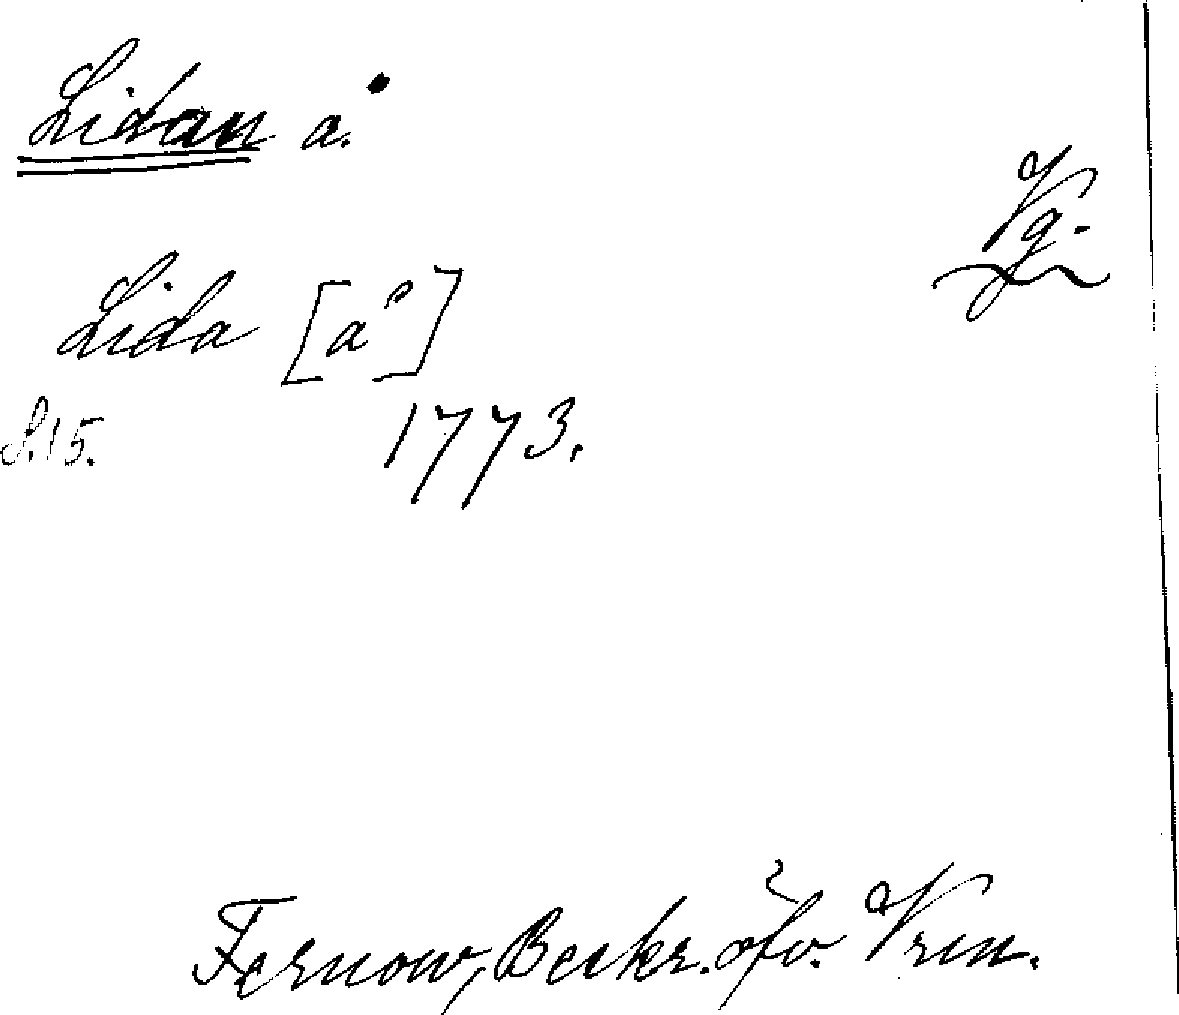 Lidan å.
Vg.
Lida [å]
S. 15. 1773.
Fernow, Beskr. öfv. Vrm.